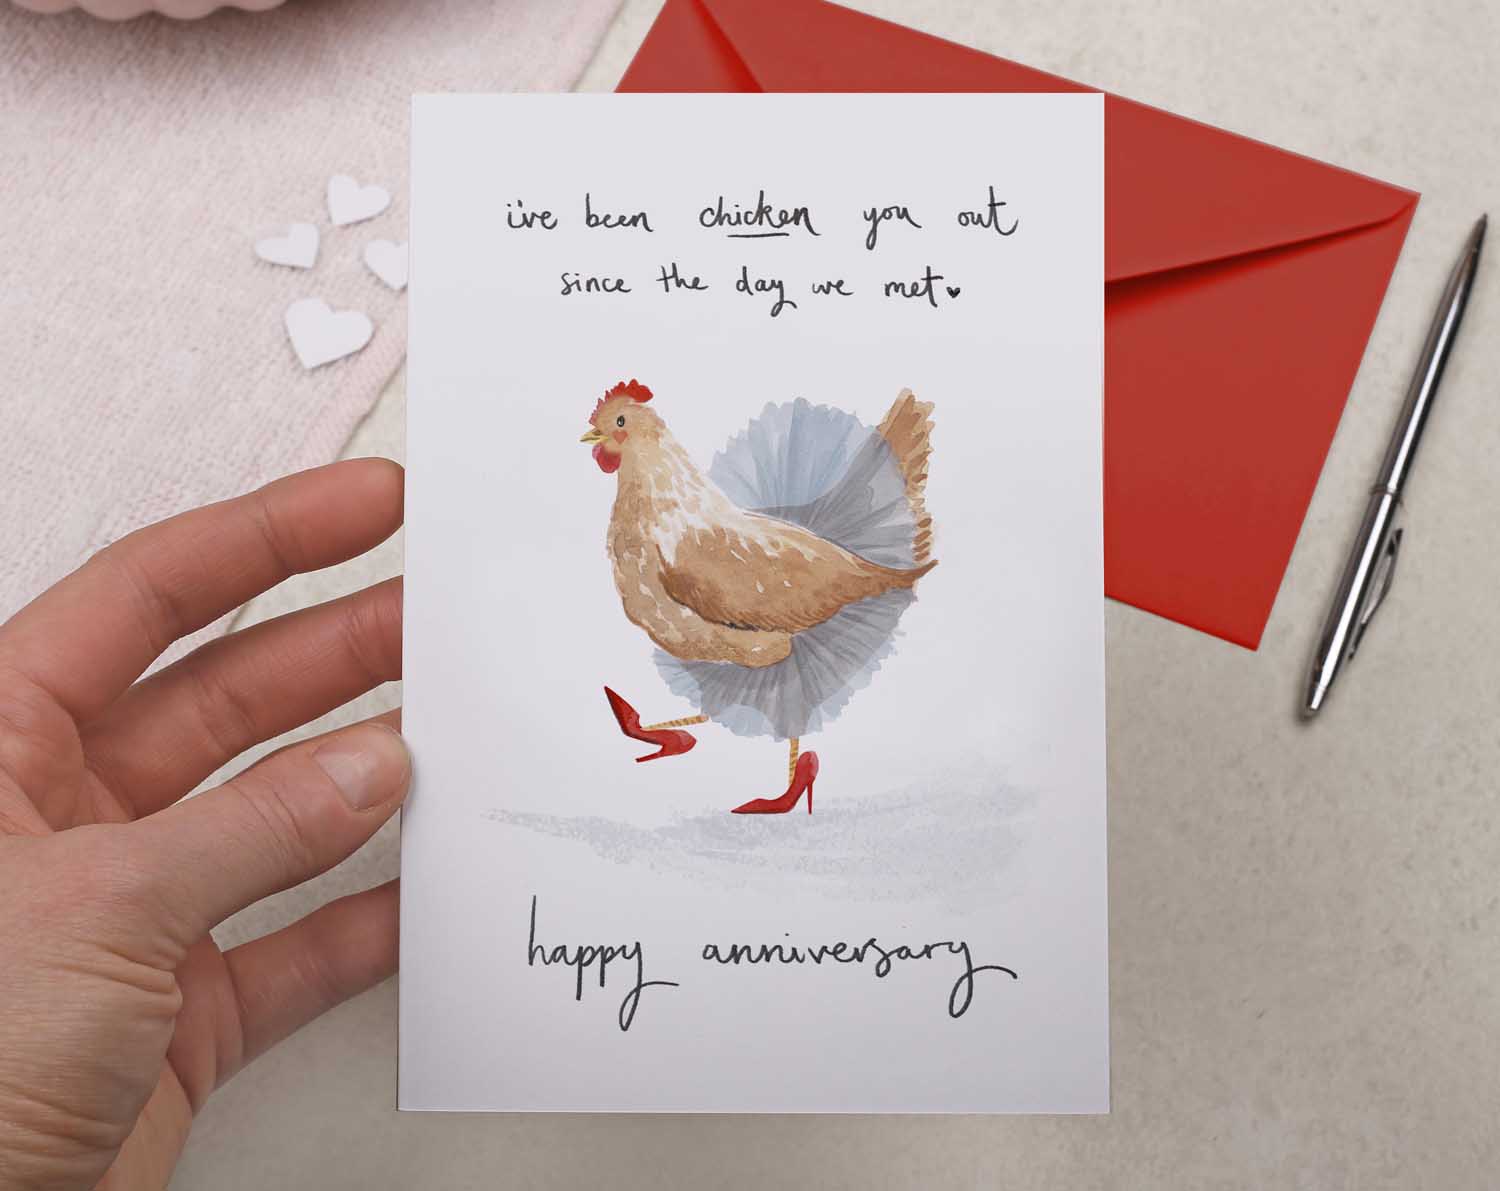 i've been chicken you out
since the day we met
happy anniversary